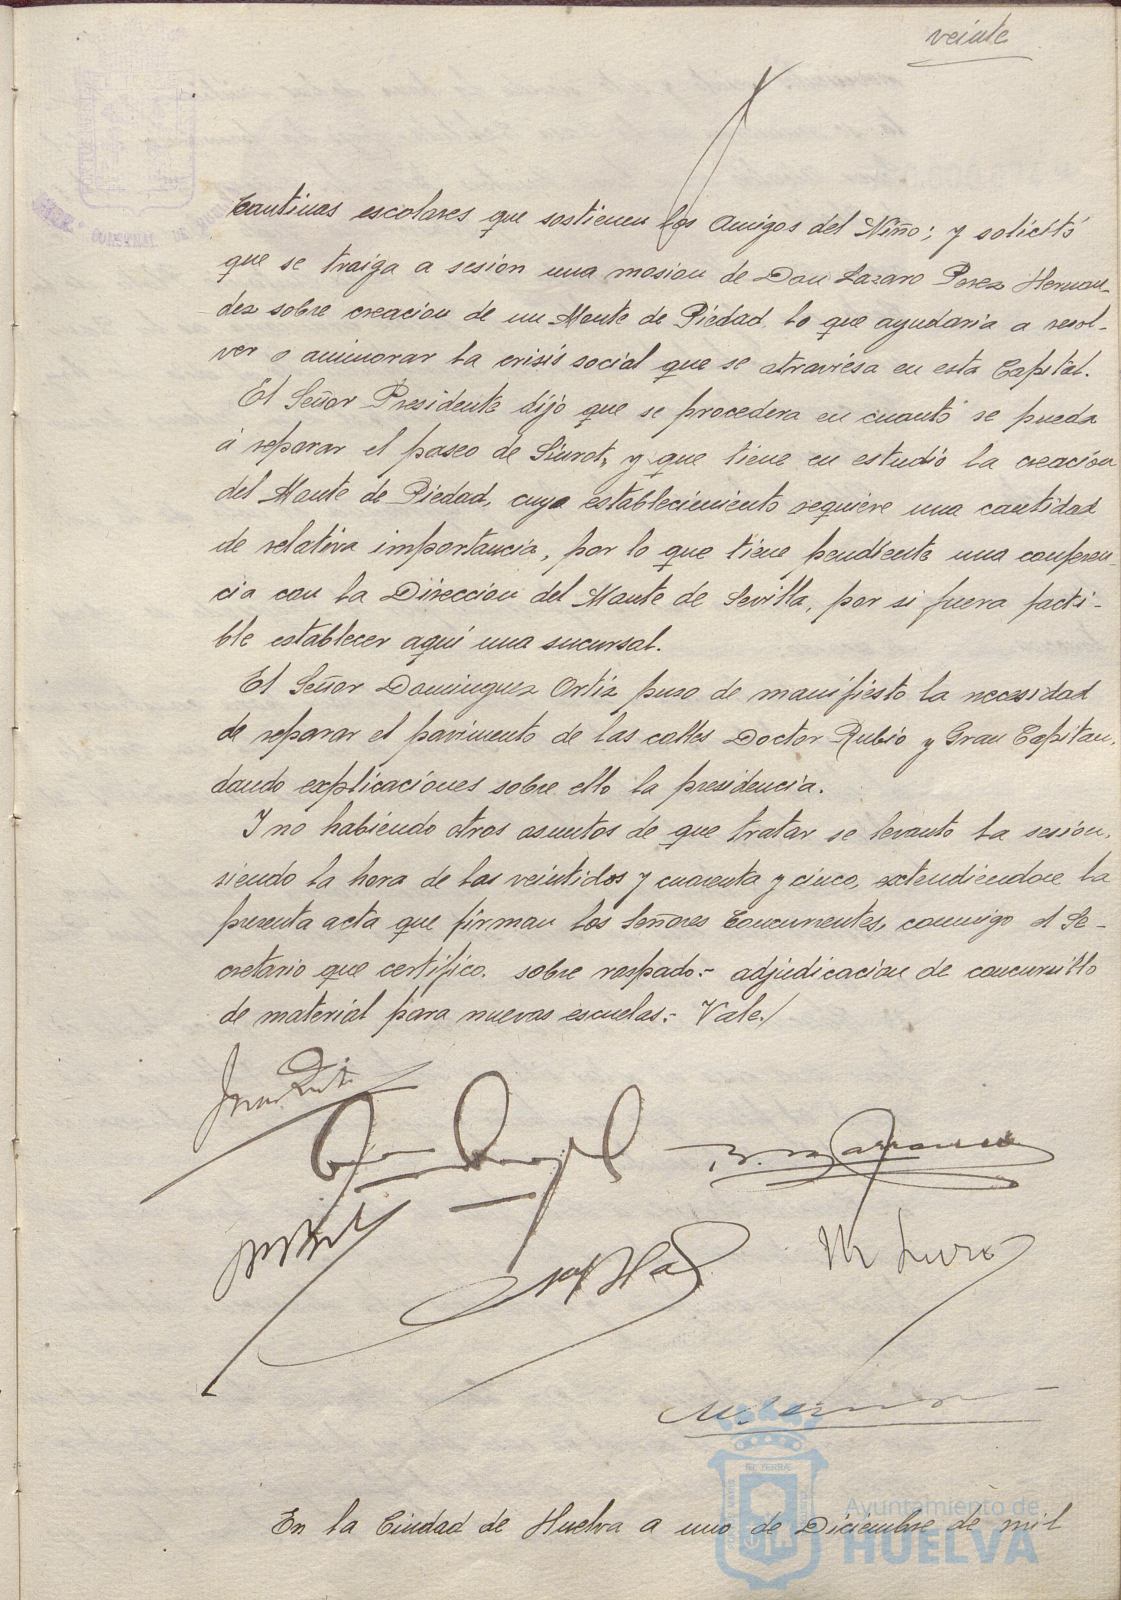 veinte
Cantinas escolares que sostienen los Amigos del Niño; y solicitó
que se traiga a sesion una mosion de Don Lazaro Perez Hernan-
dez sobre creacion de un Monte de Piedad, lo que ayudaria a resol-
ver o aminorar la crisis social que se atraviesa en esta Capital.
El Señor Presidente dijo que se procedera en cuanto se pueda
á reparar el paseo de Siurot, y que tiene en estudio la creación
del Monte de Piedad, cuyo establecimiento requiere una cantidad
de relativa importancia, por lo que tiene pendiente una conferen-
cia con la Direccion del Monte de Sevilla, por si fuera facti-
ble establecer aquí una sucursal.
El Señor Dominguez Ortiz puso de manifiesto la necesidad
de reparar el pavimento de las calles Doctor Rubio y Gran Capitan,
dando explicaciones sobre ello la presidencia.
Y no habiendo otros asuntos de que tratar se levanto la sesion,
siendo la hora de las veintidos y cuarenta y cinco, extendiendose la
presente acta que firman los Señores Concurrentes, conmigo el Se-
cretario que certifico. sobre raspado:- adjudicacion de concursillo
de material para nuevas escuelas:- Vale./
En la Ciudad de Huelva a uno de Diciembre de mil
Ayuntamiento de
HUELVA